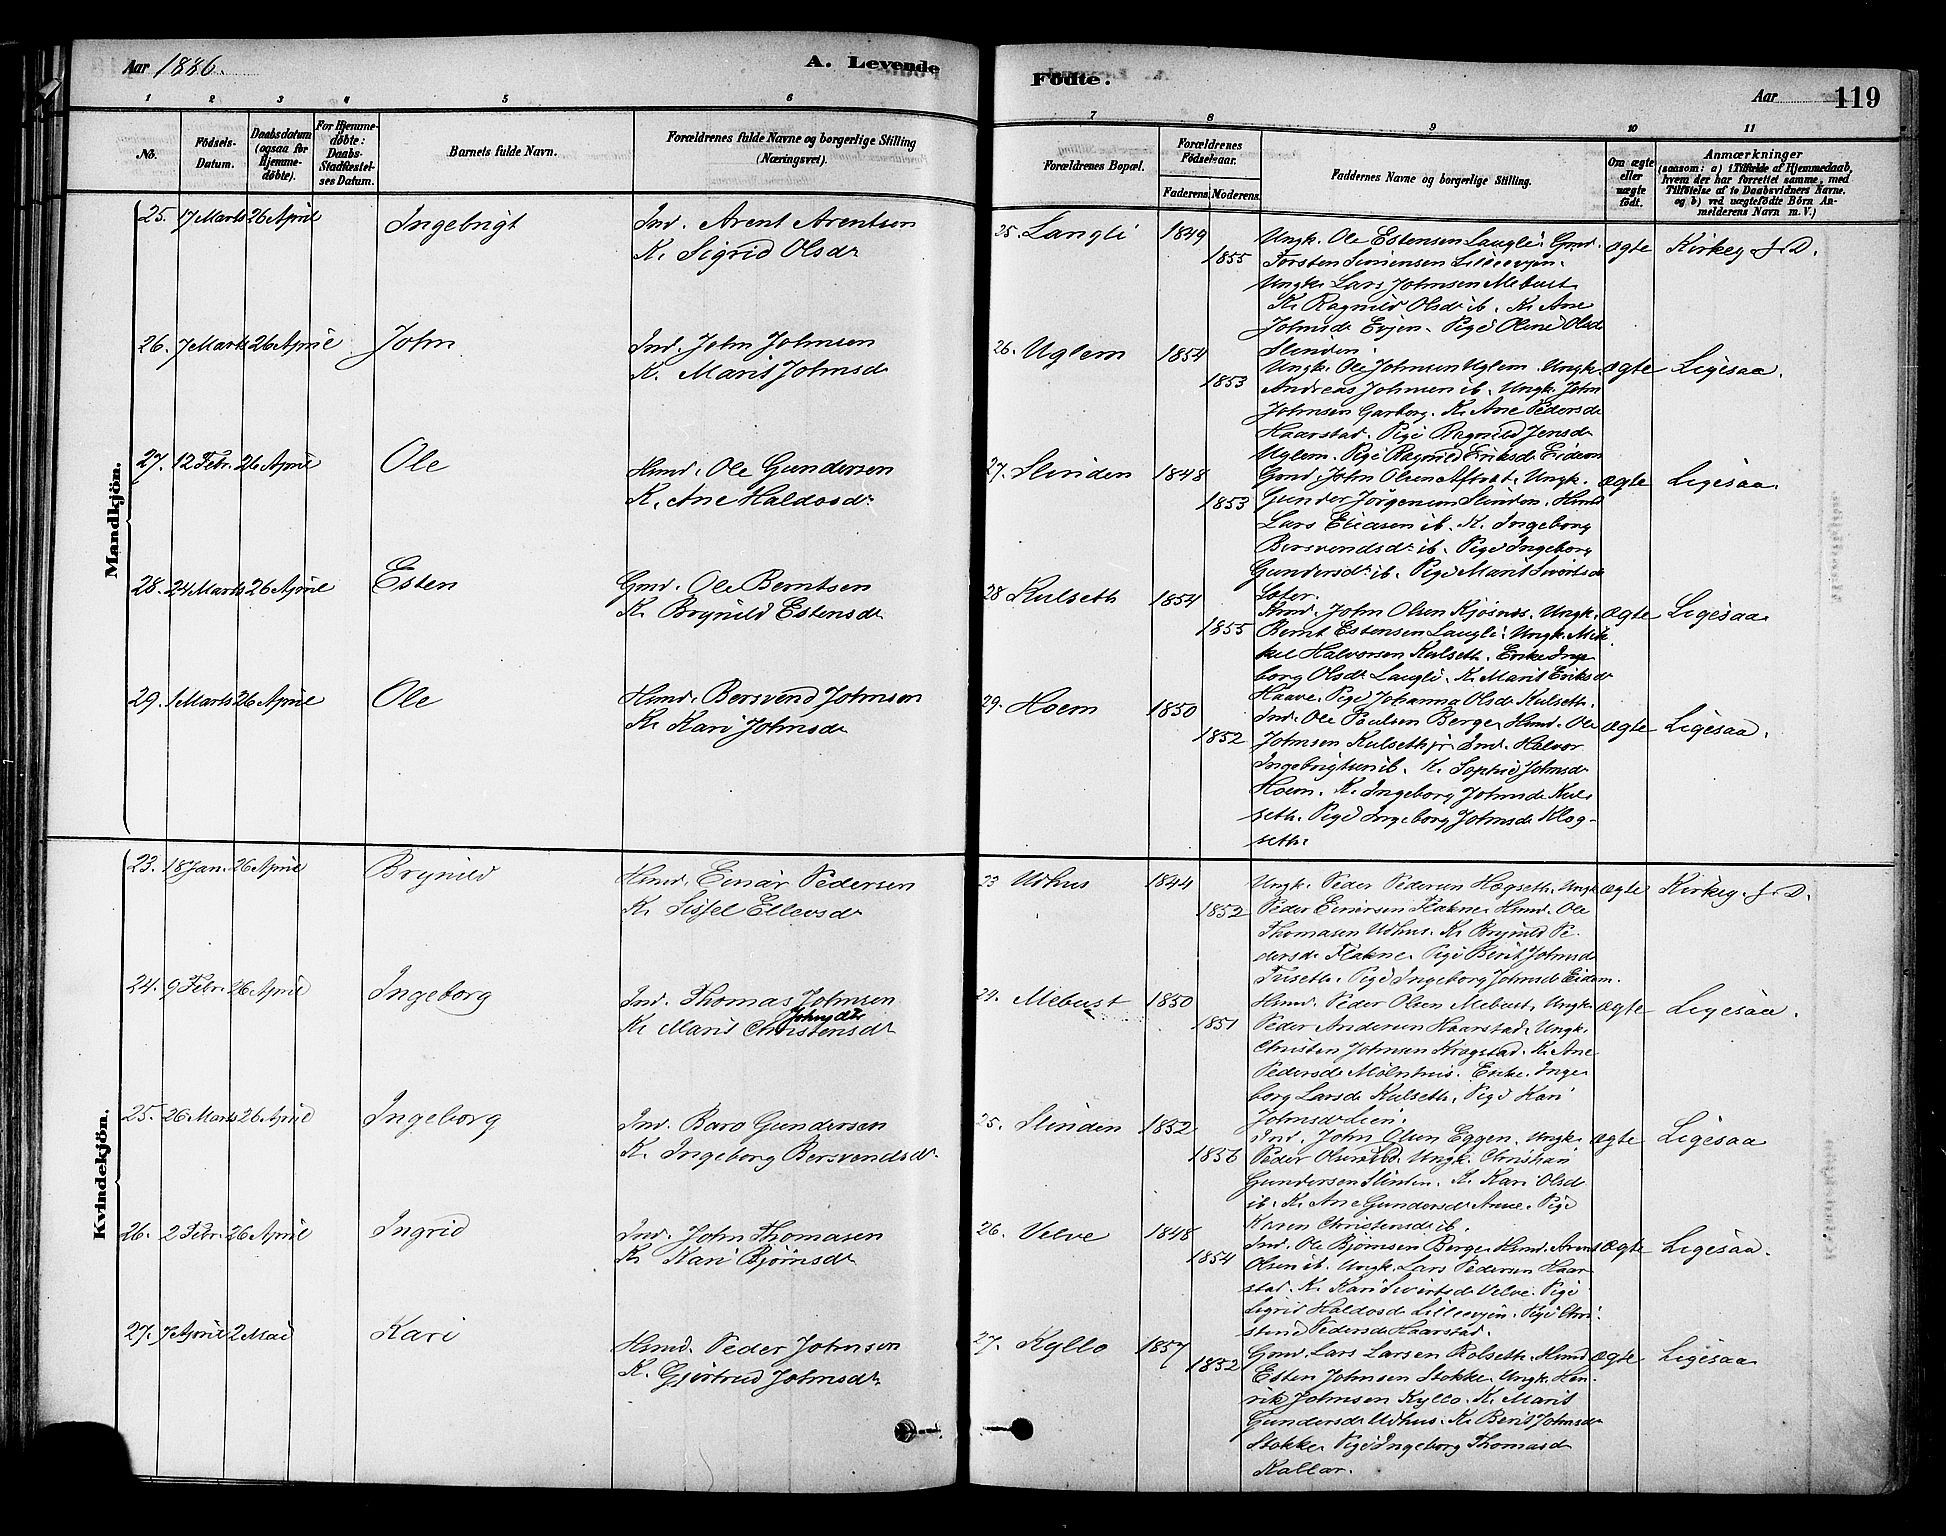 Aar 1886.
A. Levende
Födte.
Aar
119
1 2 3 4 5 6 7 8 9 10 11
No.
Födsels-Datum.
Daabsdatum (ogsaa for Hjemme-döbte).
For Hjemme-döbte: Daabs-Stadfæstel-ses Datum.
Barnets fulde Navn.
Forældrenes fulde Navne og borgerlige Stilling (Næringsvei).
Forældrenes Bopæl.
Forældrenes Födselsaar.
Faderens. Moderens.
Faddernes Navne og borgerlige Stilling.
Om ægte eller uægte födt.
Anmærkninger
(saasom: a) i Tilfælde af Hjemmedaab, hvem der har forrettet samme, med Tilföielse af to Daabsvidners Navne. og b) ved uægtefödte Börn Anmelderens Navn m. V.)
Mandkjön.
25. 17 Marts 26 April Ingebrigt
Ind. Arent Arentsen
K. Sigrid Olsdr
25. Langli 1849 1855
Ungk. Ole Estensen Langli. Gmd.
Torsten Simensen Lilleevjen.
Ungk. Lars Johnsen Mebust
K. Ragnild Olsdr ib. K. Ane
Johnsdr Evjen. Pige Oline Olsdr
Slinden.
ægte Kirkey. f. D.
26. 7 Marts 26 April John
Ind. John Johnsen
K. Marit Johnsdr
26. Uglem 1854 1853
Ungk. Ole Johnsen Uglem. Ungk.
Andreas Johnsen ib. Ungk. John
Johnsen Garberg. K. Ane Pedersdr
Haarstad. Pige Ragnild Jensdr
Uglem. Pige Ragnild Eriksdr Eidem
ægte Ligesaa.
27. 12 Febr. 26 April Ole
Hmd. Ole Gundersen
K. Ane Haldosdr
27. Slinden 1848 1853
Gmd. John Olsen Aftret. Ungk.
Gunder Jörgensen Slinden. Hmd
Lars Eliasen ib. K. Ingeborg
Bersvendsdr ib. Pige Ingeborg
Gundersdr ib. Pige Marit Sivertsdr
Soter.
ægte Ligesaa.
28. 24 Marts 26 April Esten
Gmd. Ole Berntsen
K. Brynild Estensdr
28 Kulseth 1854 1855
Hmd. John Olsen Kjösnes. Ungk.
Bernt Estensen Langli. Ungk. Mik-
kel Halvorsen Kulseth. Enke Inge
borg Olsdr Langli. K. Marit Eriksdr
Haave. Pige Johanna Olsdr Kulseth.
ægte Ligesaa.
29. 1 Marts 26 April Ole
Hmd. Bersvend Johnsen
K. Kari Johnsdr
29. Hoem 1850 1852
Ind. Ole Paulsen Berge. Hmd. Ole
Johnsen Kulseth jr Ind. Halvor
Ingebrigtsen ib. K. Sophie Johnsdr
Hoem. K. Ingeborg Johnsdr Kul
seth. Pige Ingeborg Johnsdr Kleg-
seth.
ægte Ligesaa.
Kvindekjön.
23. 18 Jan. 26 April Brynild
Hmd. Einar Pedersen
K. Sissel Ellevsdr
23 Udhus 1844 1852
Ungk. Peder Pedersen Hegseth. Ungk
Peder Einarsen Flakne. Hmd. Ole
Thomasen Udhus. K. Brynild Pe-
dersdr Flakne. Pige Berit Johnsdr
Tuseth. Pige Ingeborg Johnsdr Eidem.
ægte Kirkey. f. D.
24. 9 Febr. 26 April Ingeborg
Ind. Thomas Johnsen
Johnsdtr
K. Marit Christensdr
24. Mebust 1850 1851
Hmd. Peder Olsen Mebust. Ungk
Peder Andersen Haarstad. Ungk.
Christen Johnsen Kragstad. K. Ane
Pedersdr Mölnhus. Enke Inge
borg Larsdr Kulseth. Pige Kari
Johnsdr Lien.
ægte Ligesaa.
25. 26 Marts 26 April Ingeborg
Ind. Baro Gundersen
K. Ingeborg Bersvendsdr
25. Slinden 1852 1856
Ind. John Olsen Eggen. Ungk.
Peder Olsen ib. Ungk. Christian
Gundersen Slinden. K. Kari Olsdr
ib. K. Ane Gundersdr Amne. Pige
Karen Christensdr ib.
ægte Ligesaa
26. 2 Febr. 26 April Ingrid
Ind. John Thomasen
K. Kari Björnsdr
26. Velve 1848 1854
Ind. Ole Björnsen Berge. Hmd. Arent
Olsen ib. Ungk. Lars Pedersen Haar
stad. K. Kari Sivertsdr Velve. Pige
Sigrid Haldosdr Lilleevjen. Pige Chri-
stine Pedersdr Haarstad.
ægte Ligesaa.
27. 7 April 2 Mai Kari
Hmd. Peder Johnsen
K. Gjertrud Johnsdr
27. Kyllo 1857 1852
Gmd. Lars Larsen Rolseth. Hmd
Esten Johnsen Stokke. Ungk. Hen-
rik Johnsen Kyllo. K. Marit
Gundersdr Udhus. K. Berit Johnsdr
Stokke. Pige Ingeborg Thomasdr
Kallar.
ægte Ligesaa